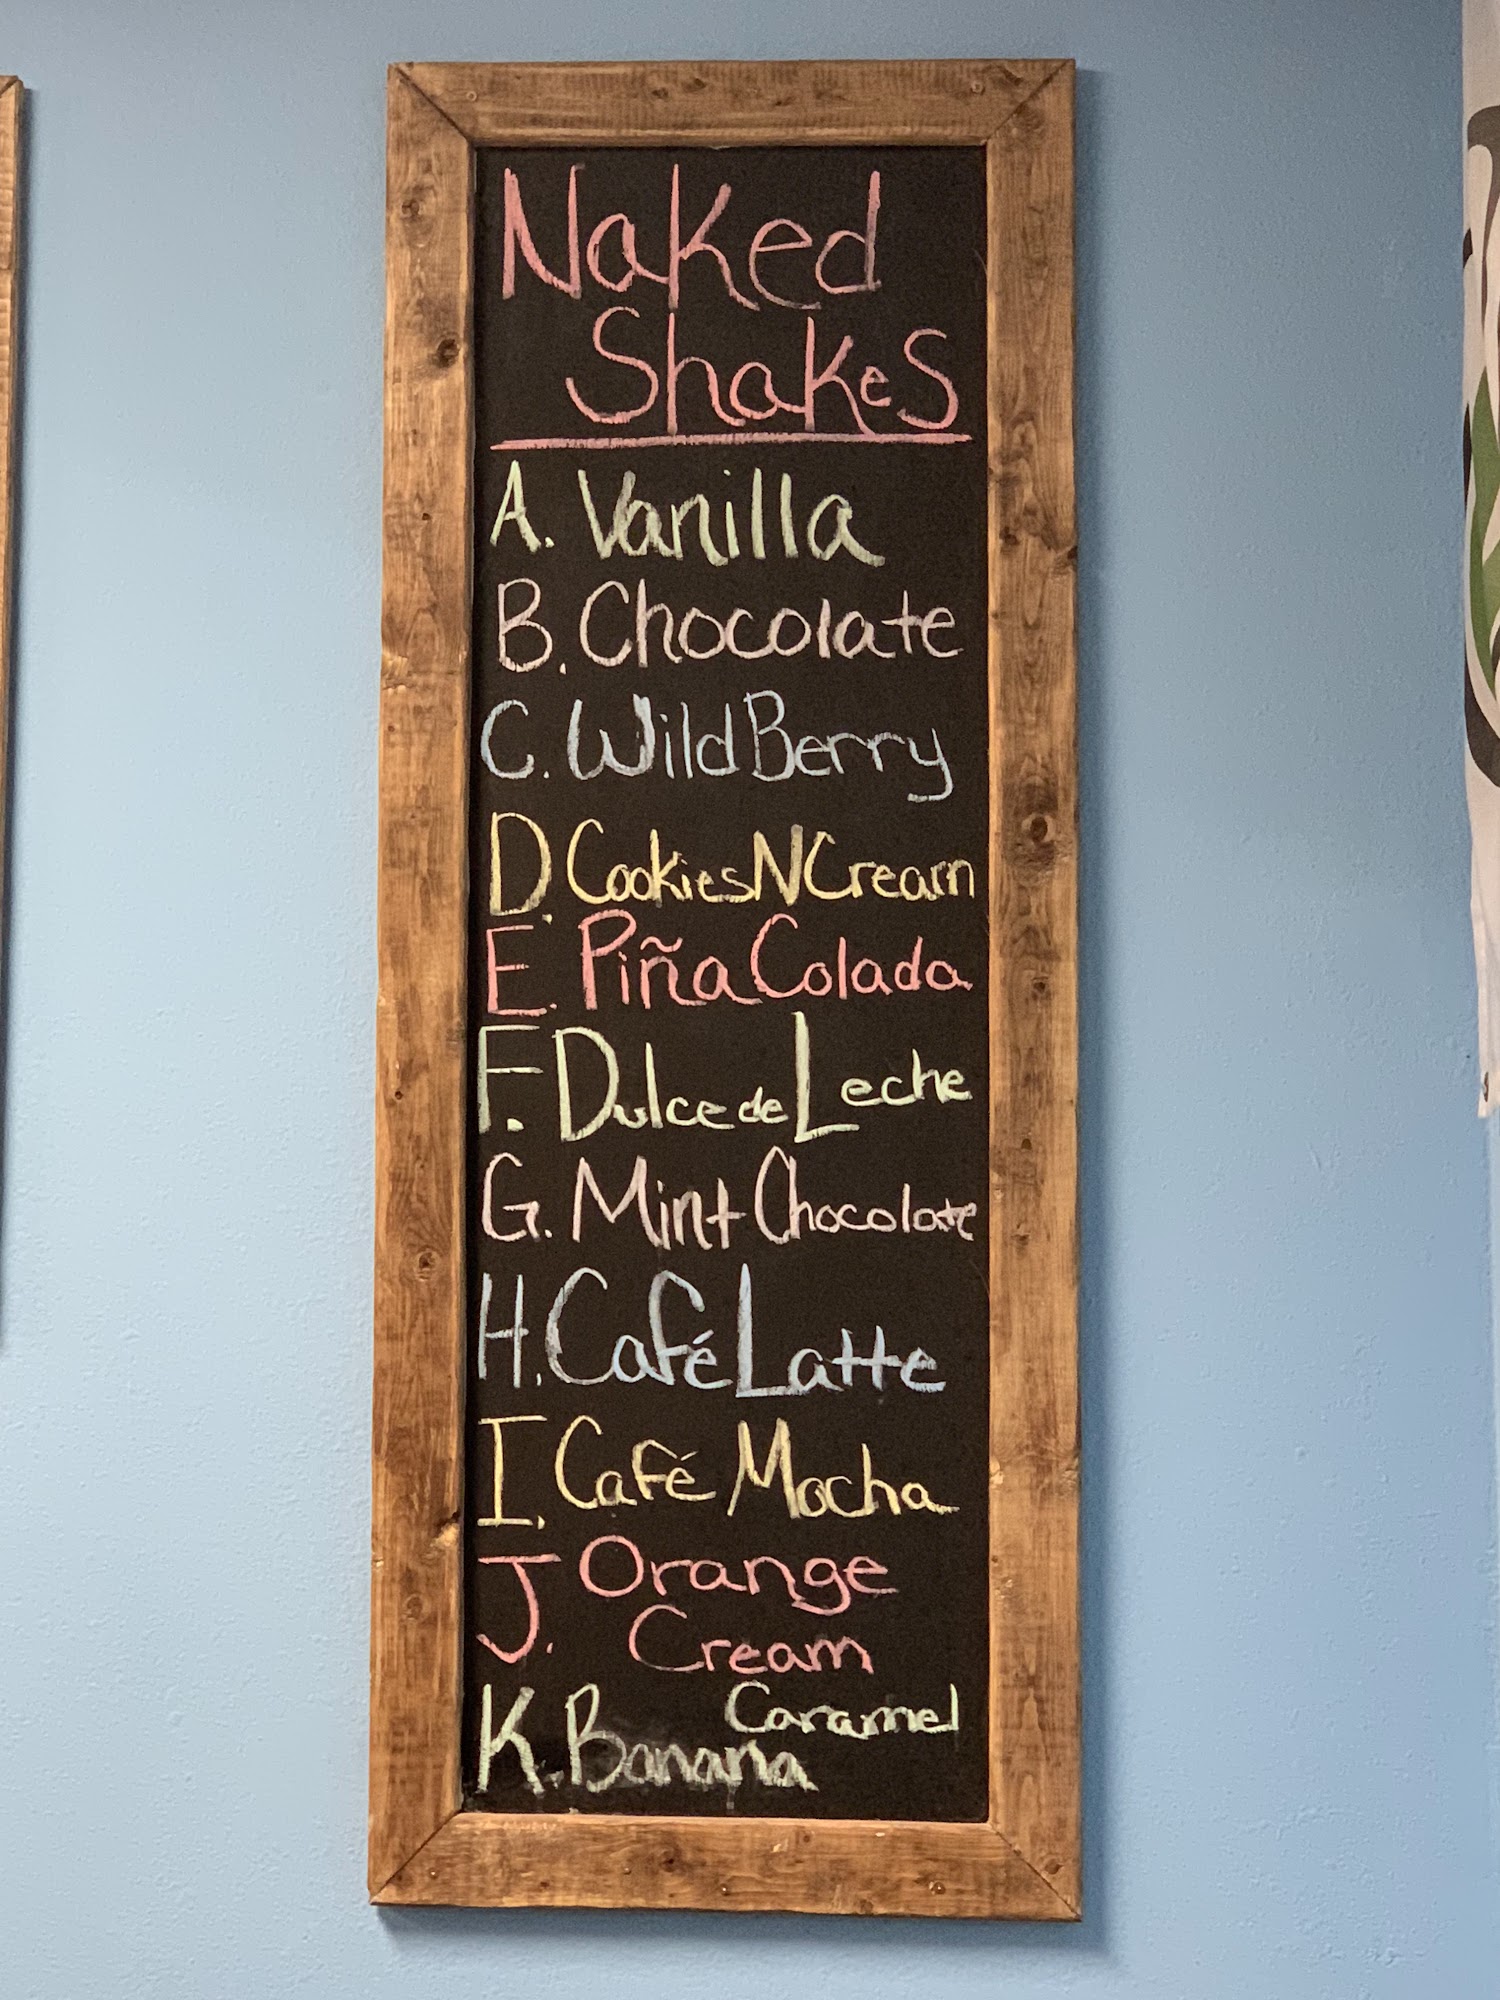 Naked
Shakes
A. Vanilla
B. Chocolate
C. Wild Berry
D. Cookies N Cream
E. Piña Colada
F. Dulce de Leche
G. Mint Chocolate
H. Café Latte
I. Café Mocha
J. Orange
Cream
Caramel
K. Banana